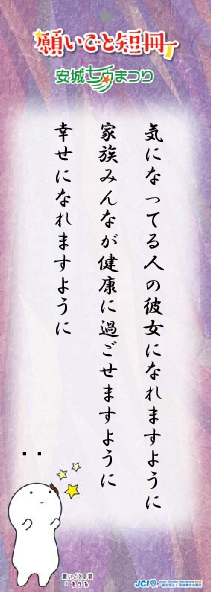 願いごと短冊
安城七夕まつり
気になってる人の彼女になれますように
家族みんなが健康に過ごせますように
幸せになれますように
:
願いごと短冊
JCI